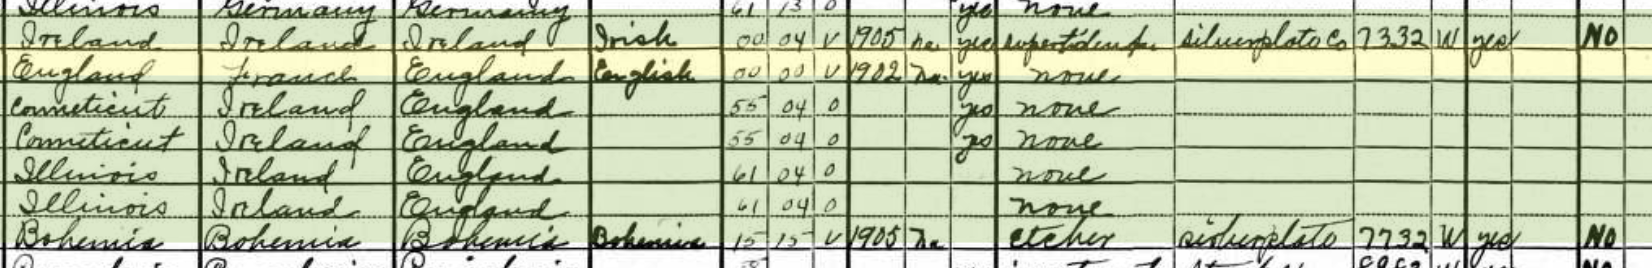 Illinois Germany Germany 61 13 0 yes none
Ireland Ireland Ireland Irish 00 04 V 1905 na yes silverplate Co 7332 W yes NO
England France England English 00 00 V 1902 Na yes none
Conneticut Ireland England 55 04 0 yes none
Conneticut Ireland England 55 04 0 yes none
Illinois Ireland England 61 04 0 none
Illinois Ireland England 61 04 0 none
Bohemia Bohemia Bohemia Bohemian 15 15 V 1905 Na etcher silverplate 7732 W yes NO